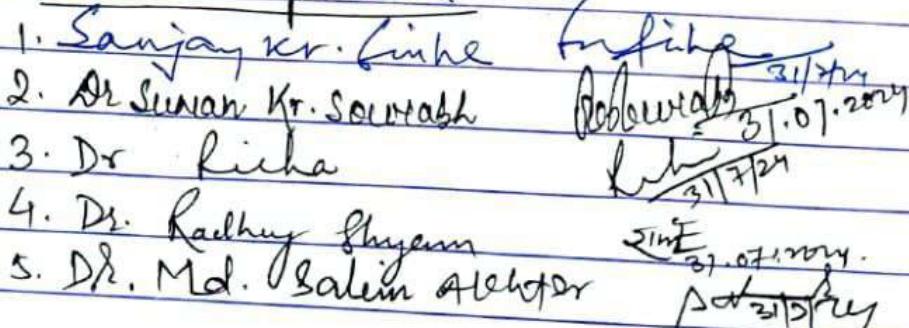 1. Sanjay Kr. Sinha 31/7/24
2. Dr Suman Kr. Sourabh 31.07.2024
3. Dr Richa 31/7/24
4. Dr. Radhey Shyam 31.07.2024.
5. Dr. Md. Salim Akhtar